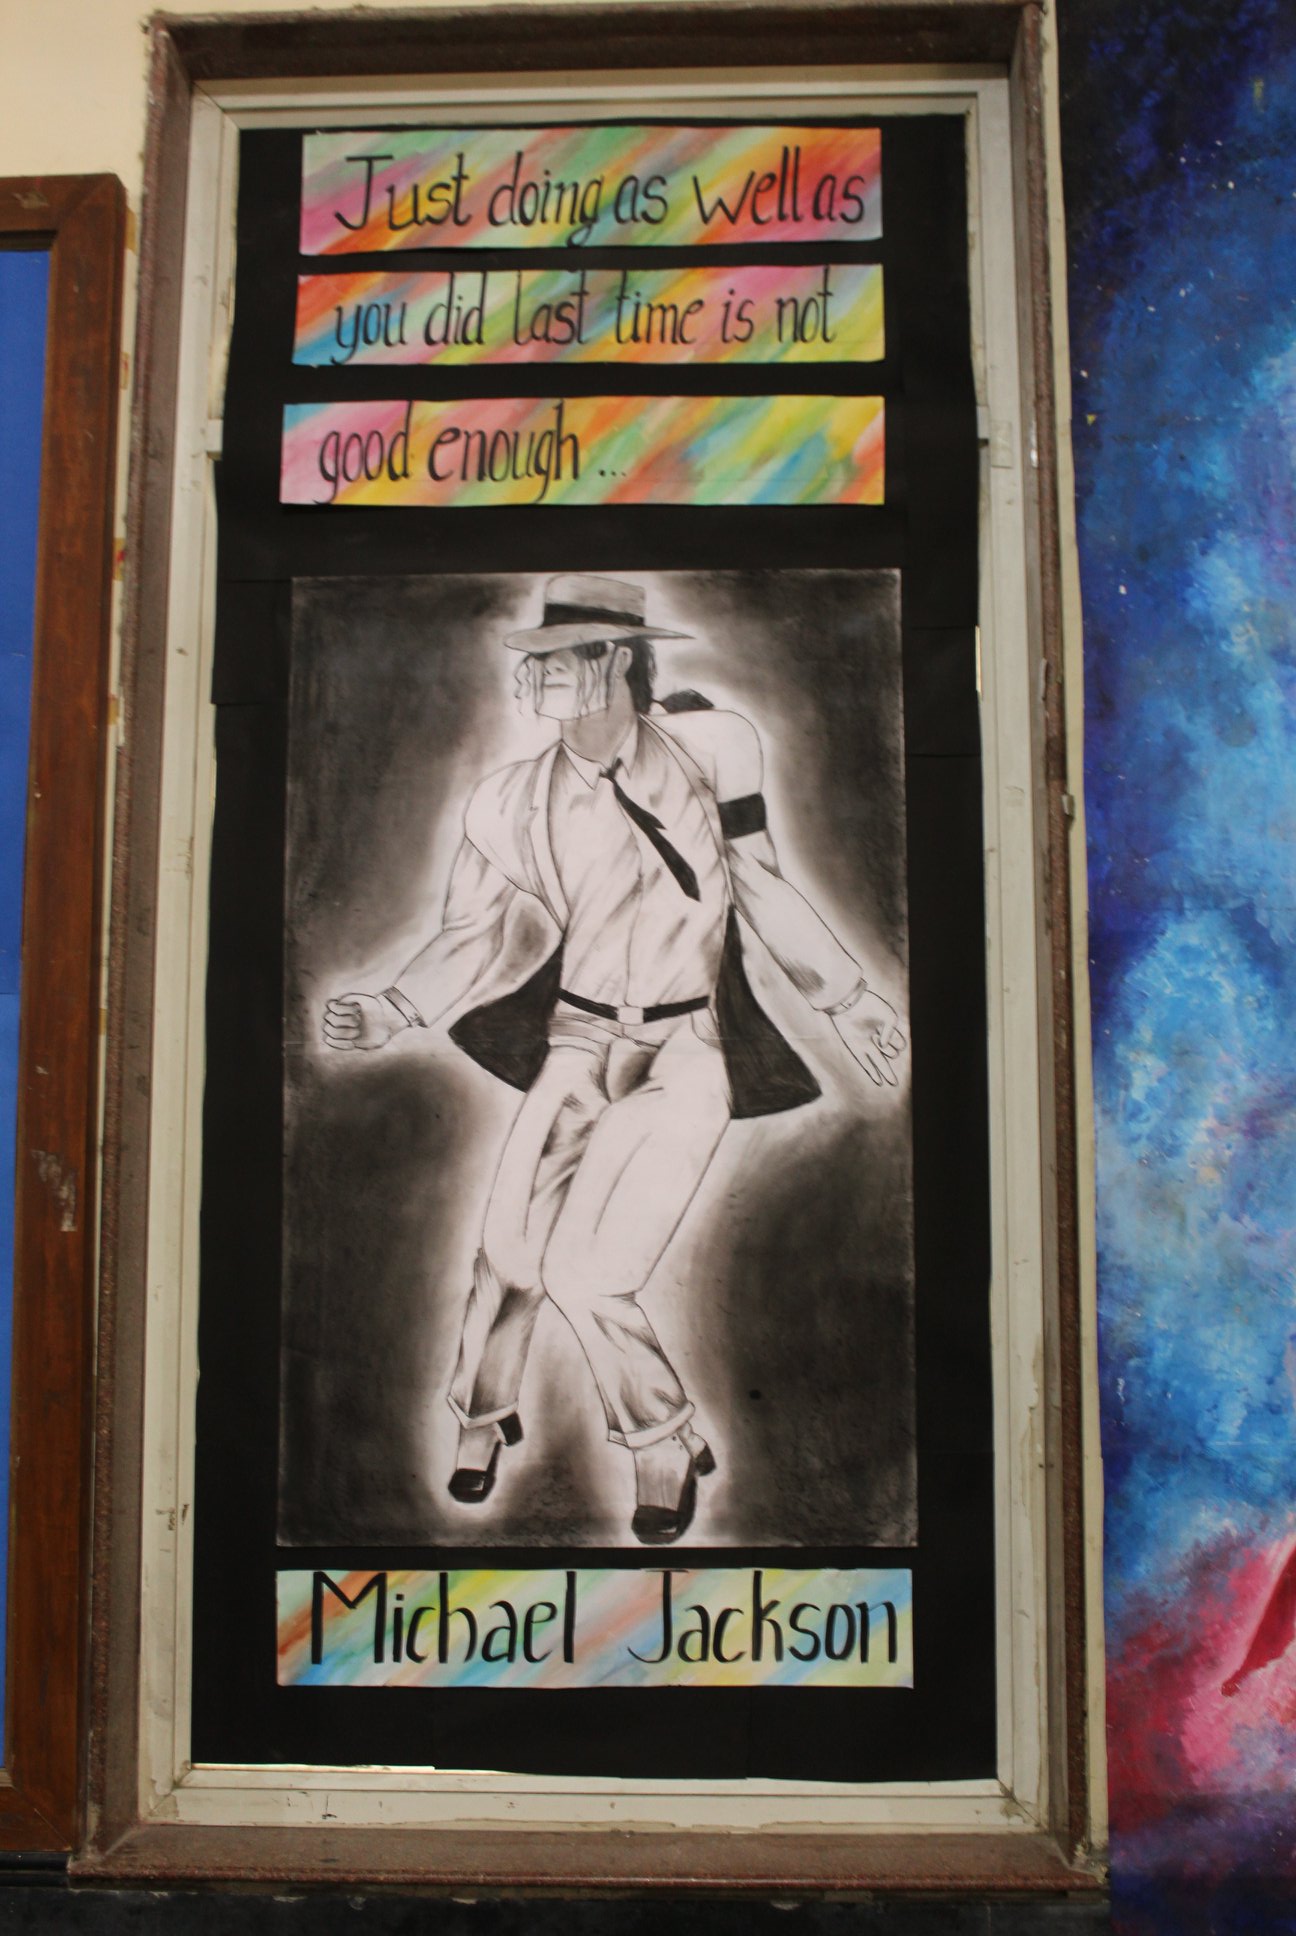 Just doing as well as
you did last time is not
good enough ...
Michael Jackson